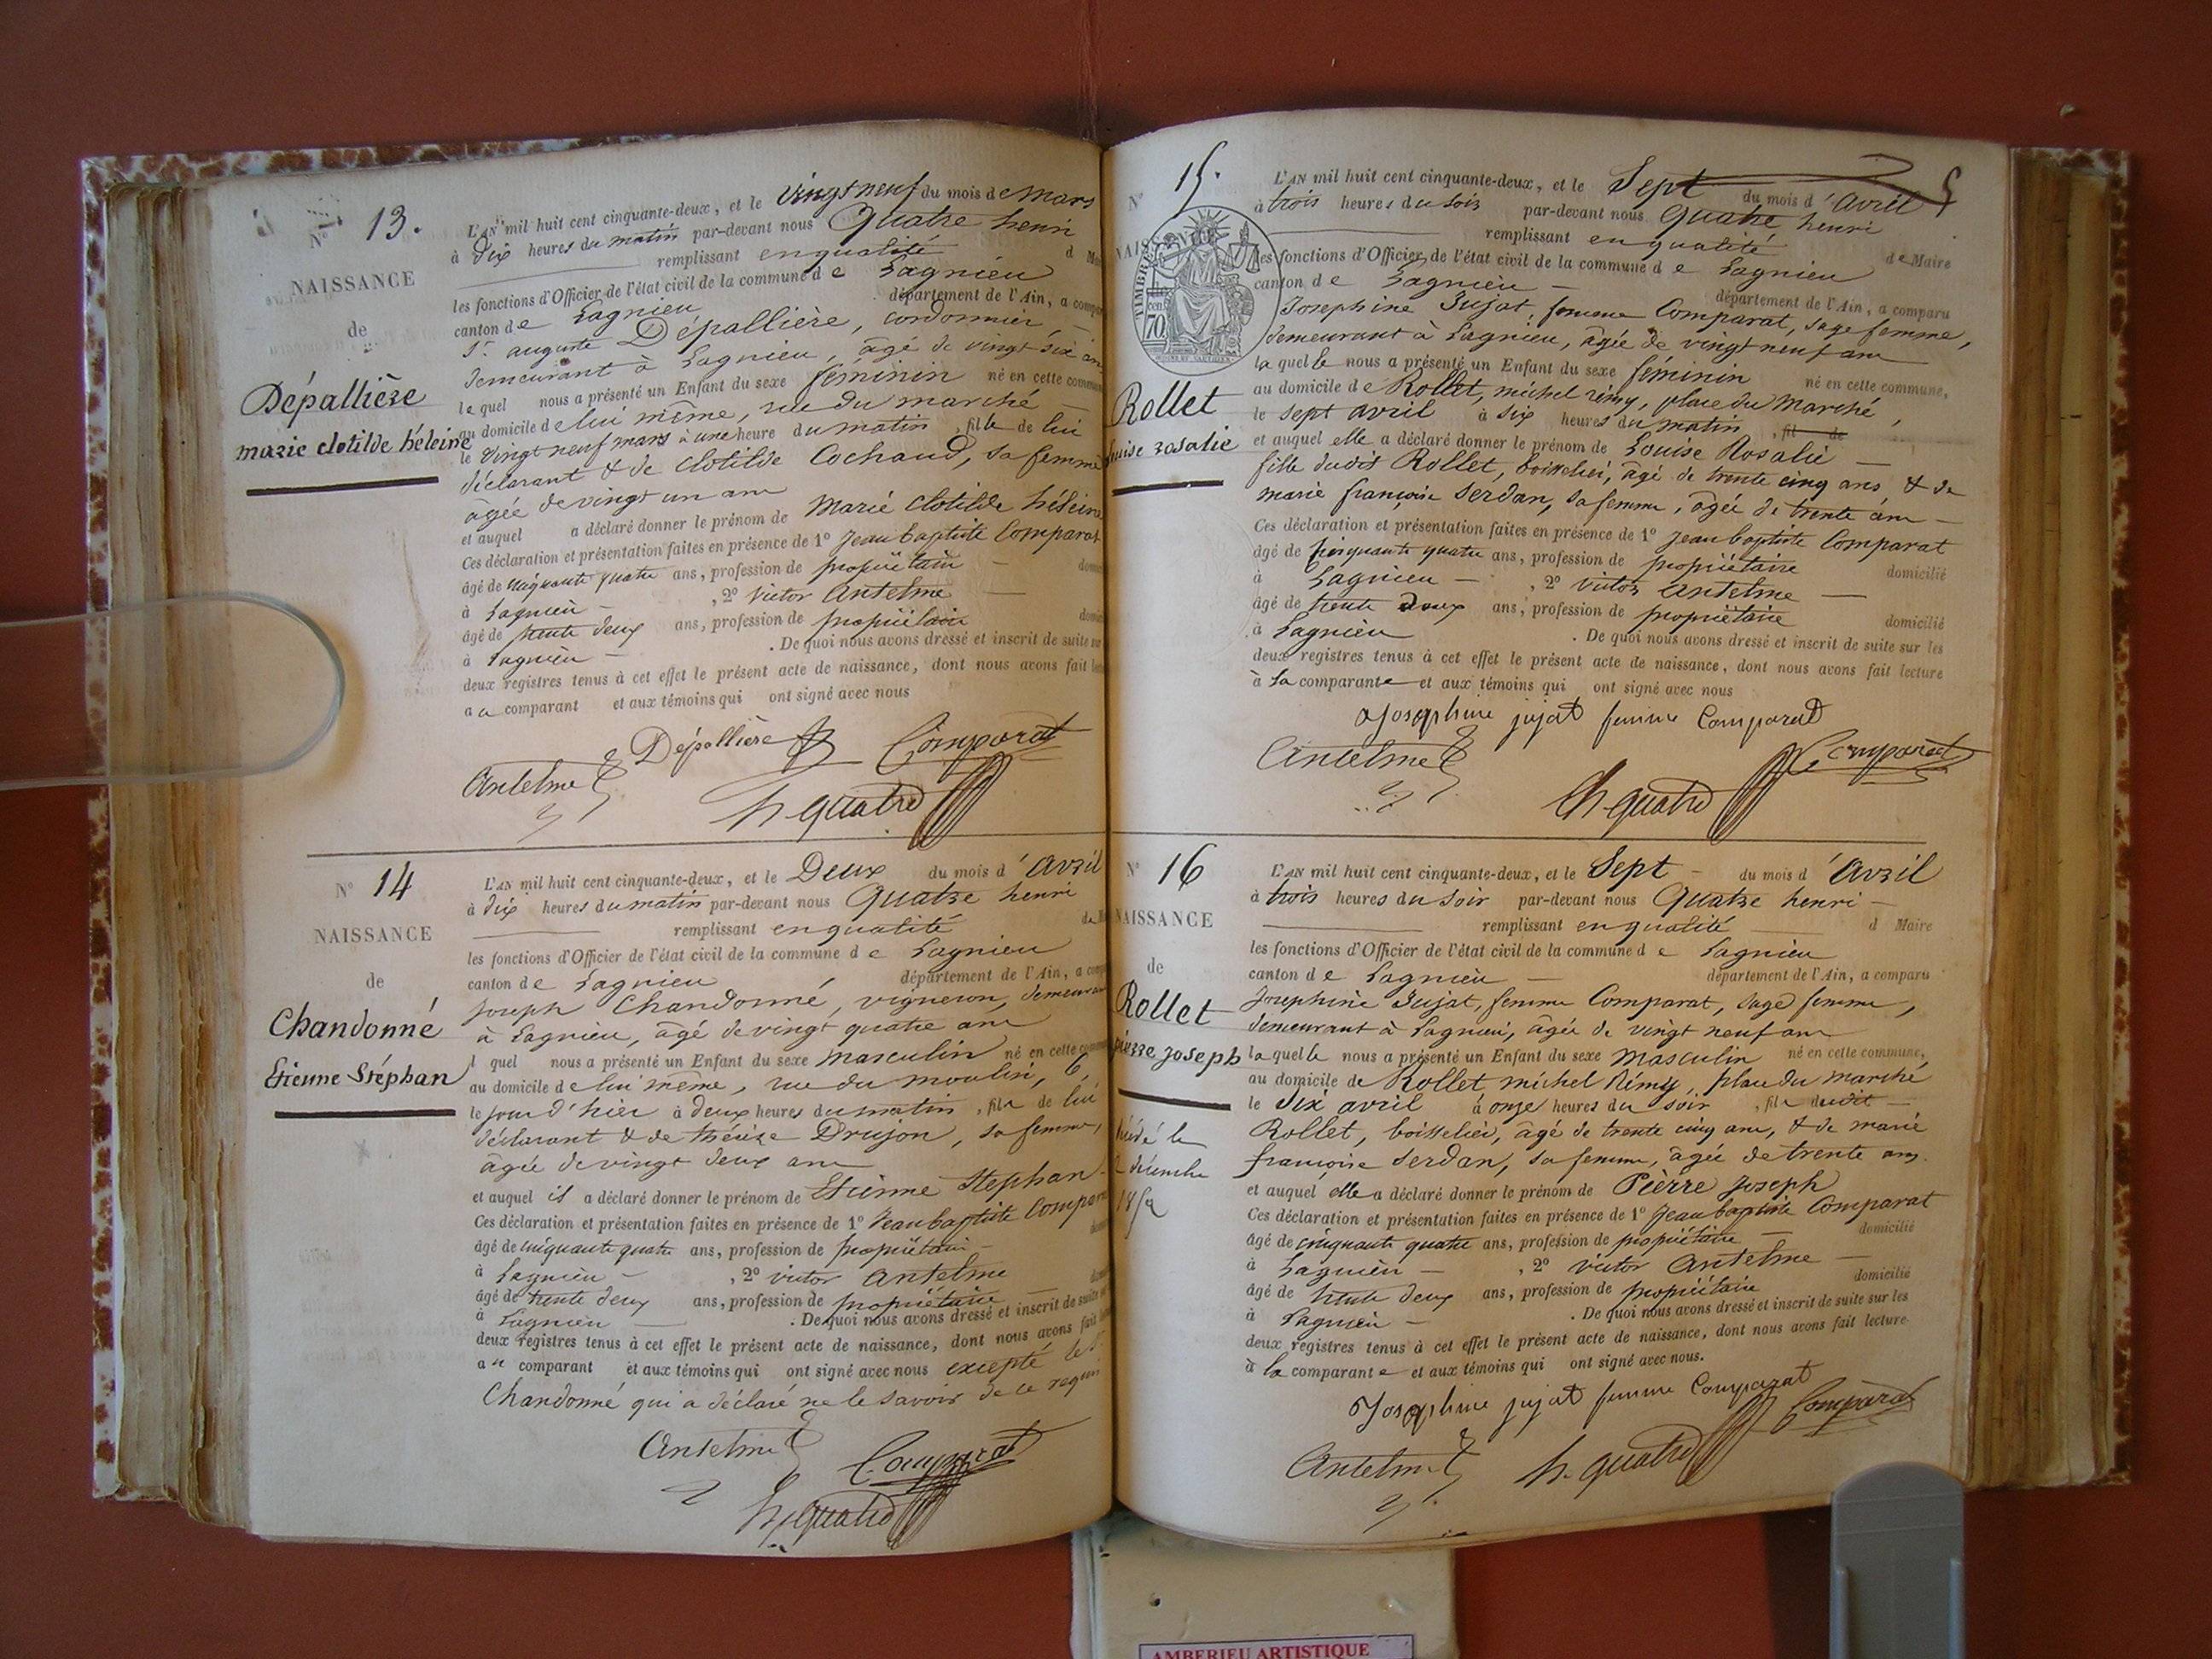 N° 13.
NAISSANCE
de
Dépallière
marie clotilde héleine
L'AN mil huit cent cinquante-deux, et le vingt neuf du mois de Mars
à dix heures du matin par-devant nous Quatre henri
remplissant en qualité d
les fonctions d'Officier de l'état civil de la commune de Lagnieu
canton de Lagnieu département de l'Ain, a
Sr auguste Dépallière, cordonnier,
demeurant à Lagnieu, âgé de vingt six ans
lequel nous a présenté un Enfant du sexe féminin né en cette
au domicile de lui même, rue du marché
le vingt neuf mars à une heure du matin, fille de lui
déclarant & de clotilde Cochaud, sa femme
âgée de vingt un ans
et auquel a déclaré donner le prénom de Marie clotilde héleine
Ces déclaration et présentation faites en présence de 1° Jean baptiste Comparat
âgé de cinquante quatre ans, profession de propriétaire
à Lagnieu , 2° victor Antelme
âgé de trente deux ans, profession de propriétaire
à Lagnieu . De quoi nous avons dressé et inscrit de suite sur
deux registres tenus à cet effet le présent acte de naissance, dont nous avons fait
au comparant et aux témoins qui ont signé avec nous
Dépallière Comparat
Antelme h quatre
N° 14
NAISSANCE
de
Chandonné
Etienne Stéphan
L'AN mil huit cent cinquante-deux, et le Deux du mois d'Avril
à dix heures du matin par-devant nous Quatre henri
remplissant en qualité de
les fonctions d'Officier de l'état civil de la commune de Lagnieu
canton de Lagnieu département de l'Ain, a
joseph Chandonné, vigneron,
à Lagnieu, âgé de vingt quatre ans
l quel nous a présenté un Enfant du sexe masculin né en cette
au domicile de lui même, rue du moulin, 6,
le jour d'hier à deux heures du matin, fils de lui
déclarant & de thérèse Drujon, sa femme,
âgée de vingt deux ans
et auquel il a déclaré donner le prénom de Etienne Stephan
Ces déclaration et présentation faites en présence de 1° Jean baptiste
âgé de cinquante quatre ans, profession de propriétaire
à Lagnieu , 2° victor Antelme
âgé de trente deux ans, profession de propriétaire
à Lagnieu . De quoi nous avons dressé et inscrit de suite
deux registres tenus à cet effet le présent acte de naissance, dont nous avons fait
au comparant et aux témoins qui ont signé avec nous excepté
Chandonné qui a déclaré ne le savoir de ce
Antelme Comparat
h quatre
N° 15.
5
TIMBRE
70
NAISSANCE
Rollet
rosalie
L'AN mil huit cent cinquante-deux, et le Sept du mois d'avril
à trois heures du soir par-devant nous Quatre henri
remplissant en qualité de Maire
les fonctions d'Officier de l'état civil de la commune de Lagnieu
canton de Lagnieu département de l'Ain, a comparu
Josephine Jujat, femme Comparat, sage femme,
demeurant à Lagnieu, âgée de vingt neuf ans
laquelle nous a présenté un Enfant du sexe féminin né en cette commune,
au domicile de Rollet, michel rémy, place du Marché,
le sept avril à six heures du matin , fil de
et auquel elle a déclaré donner le prénom de Louise Rosalie
fille dudit Rollet, boisselier, âgé de trente cinq ans & de
marie françoise Serdan, sa femme, âgée de trente ans
Ces déclaration et présentation faites en présence de 1° Jean baptiste Comparat
âgé de cinquante quatre ans, profession de propriétaire domicilié
à Lagnieu , 2° victor Antelme
âgé de trente deux ans, profession de propriétaire domicilié
à Lagnieu . De quoi nous avons dressé et inscrit de suite sur les
deux registres tenus à cet effet le présent acte de naissance, dont nous avons fait lecture
à la comparante et aux témoins qui ont signé avec nous
Josephine jujat femme Comparat
Antelme Comparat
h quatre
N° 16
NAISSANCE
de
Rollet
joseph
L'AN mil huit cent cinquante-deux, et le Sept du mois d'Avril
à trois heures du soir par-devant nous Quatre henri
remplissant en qualité d Maire
les fonctions d'Officier de l'état civil de la commune de Lagnieu
canton de Lagnieu département de l'Ain, a comparu
Josephine Jujat, femme Comparat, sage femme,
demeurant à Lagnieu, âgée de vingt neuf ans
laquelle nous a présenté un Enfant du sexe Masculin né en cette commune,
au domicile de Rollet michel Rémy, place du marché
le Six avril à onze heures du soir , fils dudit
Rollet, boisselier, âgé de trente cinq ans, & de marie
françoise Serdan, sa femme, âgée de trente ans.
et auquel elle a déclaré donner le prénom de Pièrre Joseph
Ces déclaration et présentation faites en présence de 1° Jean baptiste Comparat
âgé de cinquante quatre ans, profession de propriétaire domicilié
à Lagnieu , 2° victor Antelme
âgé de trente deux ans, profession de propriétaire domicilié
à Lagnieu . De quoi nous avons dressé et inscrit de suite sur les
deux registres tenus à cet effet le présent acte de naissance, dont nous avons fait lecture
à la comparante et aux témoins qui ont signé avec nous.
Josephine jujat femme Comparat
Comparat
Antelme h. quatre
AMBERIEU ARTISTIQUE